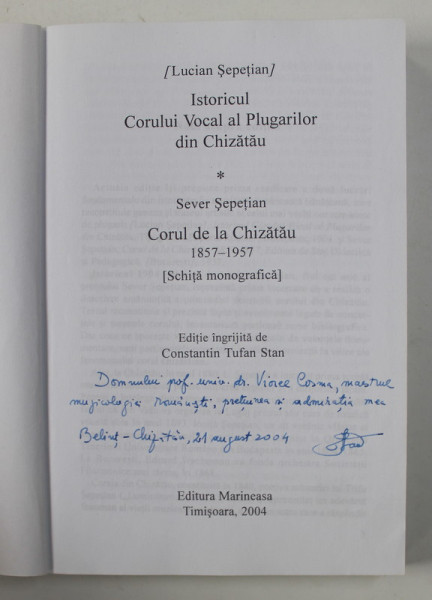 [Lucian Șepețian]
Istoricul
Corului Vocal al Plugarilor
din Chizătău
*
Sever Șepețian
Corul de la Chizătău
1857–1957
[Schiță monografică]
Ediție îngrijită de
Constantin Tufan Stan
Domnului prof. univ. dr. Viorel Cosma, maestrul
muzicologiei românești, prețuirea și admirația mea
Belinț – Chizătău, 21 august 2004
Editura Marineasa
Timișoara, 2004